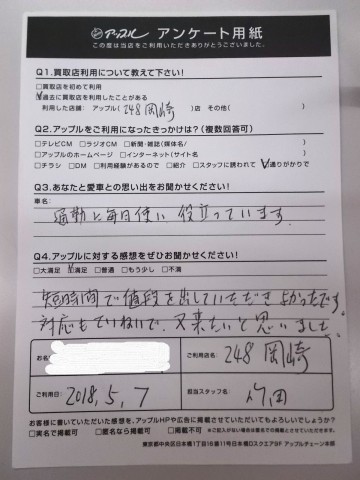 アップル アンケート用紙
この度は当店をご利用いただきありがとうございました。
Q1.買取店利用について教えて下さい!
□買取店を初めて利用
☑過去に買取店を利用したことがある
利用した店舗: アップル( 248 岡崎 )店 その他( )
Q2.アップルをご利用になったきっかけは?(複数回答可)
□テレビCM □ラジオCM □新聞・雑誌(媒体名/ )
□アップルのホームページ □インターネット(サイト名 )
□チラシ □DM □利用経験があるので □紹介 □スタッフに誘われて ☑通りがかりで
Q3.あなたと愛車との思い出をお聞かせください!
車名:
通勤に毎日使い役立っています.
Q4.アップルに対する感想をぜひお聞かせください!
□大満足 ☑満足 □普通 □もう少し □不満
短時間で値段を出していただきよかったです。
対応もていねいで、又来たいと思いました。
お名
ご利用店名: 248 岡崎
ご利用日: 2018, 5, 7
担当スタッフ名:
お客様に書いていただいた感想を、アップルHPや広告に掲載させていただいてもよろしいでしょうか?
□実名で掲載可 □匿名なら掲載可 □掲載不可 ※ご記入がない場合は匿名での掲載とさせていただきます。
東京都中央区日本橋1丁目19番11号日本橋DスクエアBF アップルチェーン本部